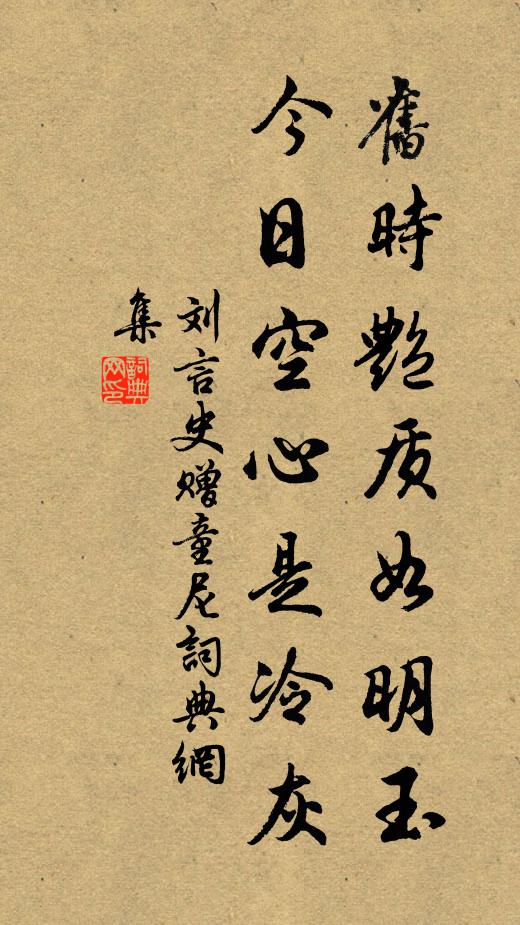 舊時艷质如明玉
今日空心是冷灰
刘言史赠童尼詞典網
集
詞典
网印